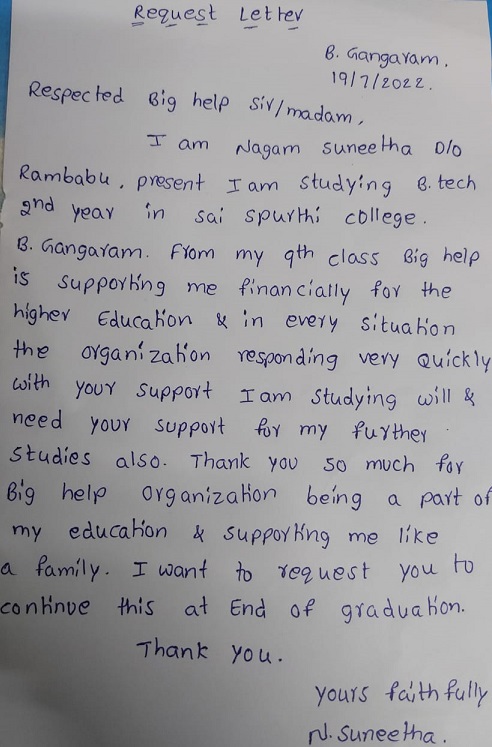 Request Letter
B. Gangaram.
19/7/2022.
Respected Big help sir/madam,
I am Nagam suneetha D/o
Rambabu, present I am studying B.tech
2nd year in sai spurthi college.
B. Gangaram. From my 9th class Big help
is supporting me financially for the
higher Education & in every situation
the organization responding very Quickly
with your support I am studying will &
need your support for my further
studies also. Thank you so much for
Big help organization being a part of
my education & supporting me like
a family. I want to request you to
continue this at End of graduation.
Thank you.
yours faithfully
N. Suneetha.